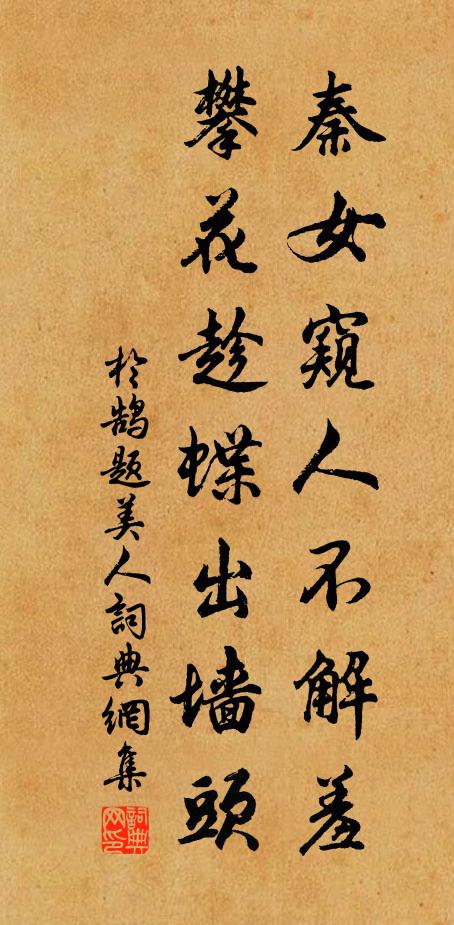 秦女窺人不解羞
攀花趁蝶出墻頭
於鵠題美人詞典網集
詞典网印